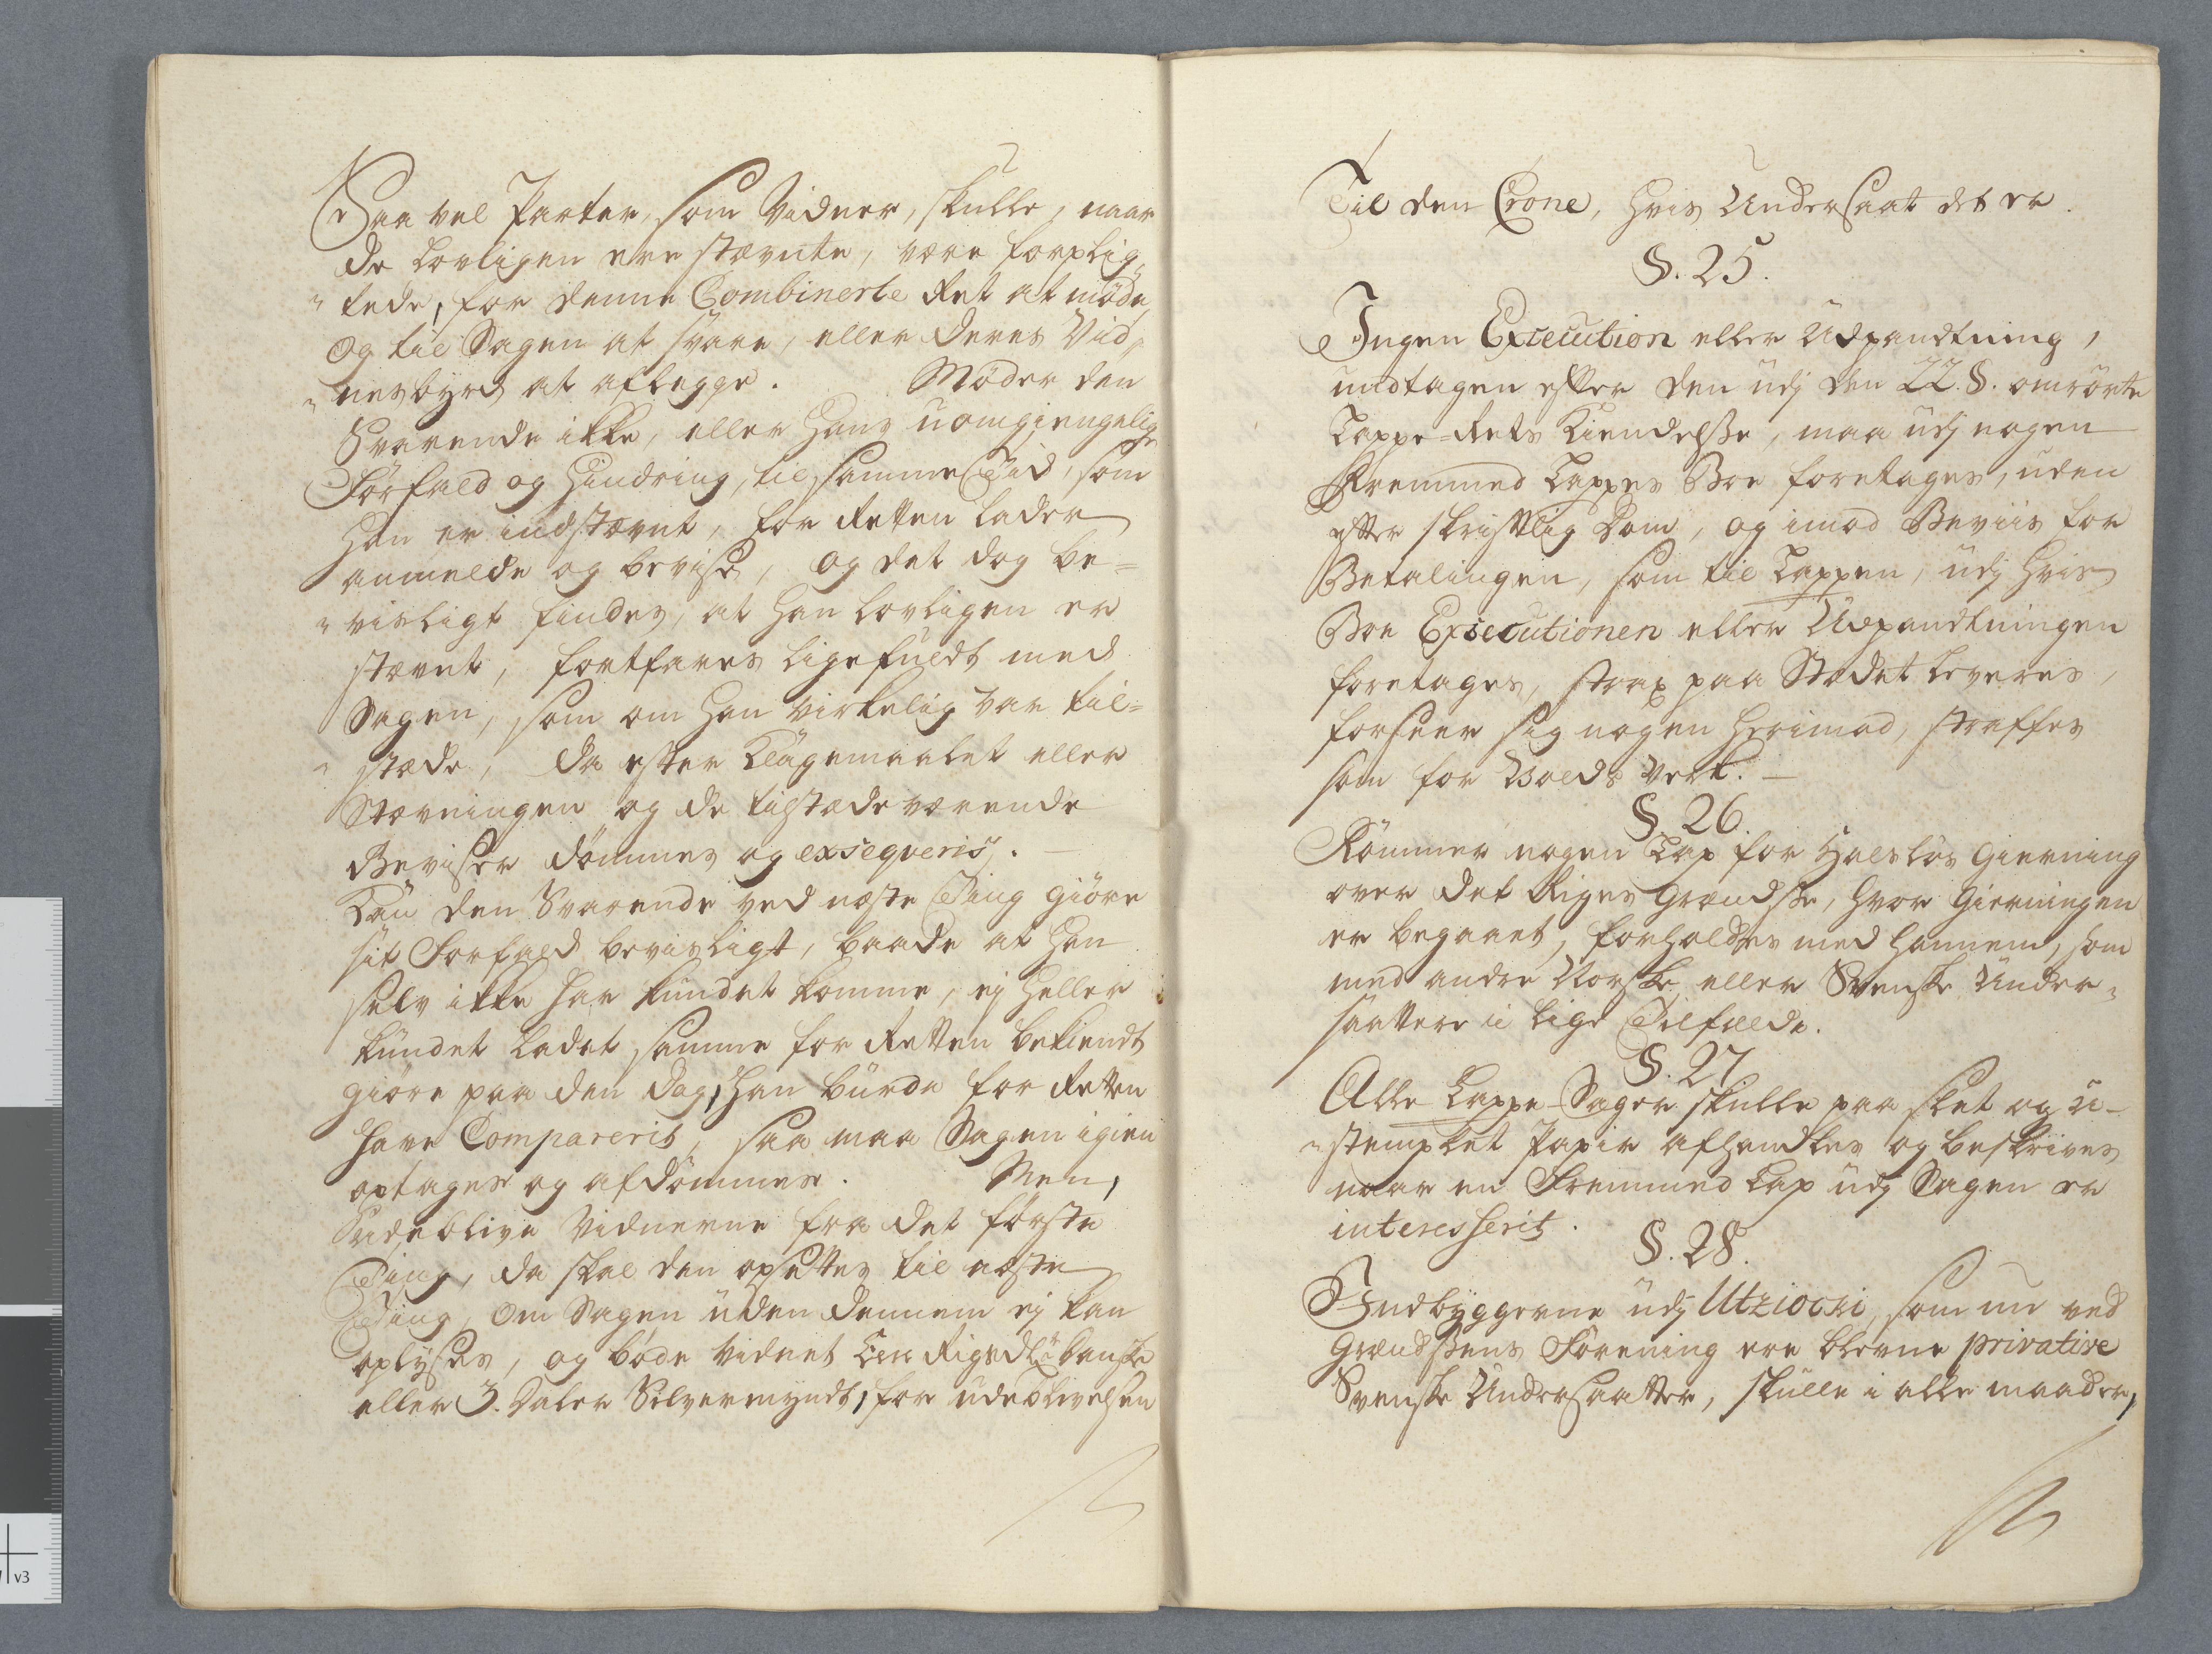 Saa vel Parter, som Vidner, skulle, naar
de lovligen ere stævnte, være forplig„
„tede, for denne Combinerte Ret at møde,
og til Sagen at svare, eller deres Vid„
„nesbyrd at aflegge. Møder den
Svarende ikke, eller Hans uomgiengelige
Forfald og Hindring, til samme Tid, som
Han er indstævnt, for Retten lader
anmelde og bevise, og det dog be=
„visligt findes, at Han lovligen er
stævnt, fortfares ligefuldt med
Sagen, som om Han virkelig var til=
„stæde, da efter Klagemaalet eller
Stævningen og de tilstædeværende
Beviser dømmes og exseqveris. —
Kan den Svarende ved næste Ting giøre
sit Forfald bevisligt, baade at Han
selv ikke har kundet komme, ej heller
kundet ladet samme for Retten bekiendt
giøre paa den Dag, Han burde for Retten
have Comparerit, saa maa Sagen igien
optages og afdømmes. Men,
Udeblive Vidnerne fra det første
Ting, da skal den opsettes til næste
Ting, om Sagen uden dennem ej kan
oplyses, og bøde Vidnet Een Rigsdlr Danske
eller 3. Daler Sølvermyndt, for udeblivelsen
Til den Crone, Hvis Undersaat det er.
§. 25.
Ingen Execution eller Udpandtning,
undtagen efter den udj den 22. §. omrørte
Lappe=Rets Kiendelse, maa udj nogen
Fremmed Lappes Boe foretages, uden
efter skriftlig Dom, og imod Beviis for
Betalingen, som til Lappen, udj Hvis
Boe Executionen eller Udpandtningen
foretages, strax paa Stædet leveres,
forseer sig nogen Herimod, straffes
som for Volds Verk. —
§. 26.
Rømmer nogen Lap for Halsløs Gierning
over det Riges Grændse, Hvor Gierningen
er begaaet, forholdes med Hannem, som
med andre Norske eller Svenske Under„
saattere i lige Tilfælde.
§. 27
Alle Lappe-Sager skulle paa slet og u-
„stemplet Papir afhandles og beskrives
naar en Fremmed Lap udj Sagen er
interesserit.
§. 28.
Indbyggerne udj Utziocki, som nu ved
Grændsens Forening ere blevne privative
Svenske Undersaatter, skulle i alle maader,